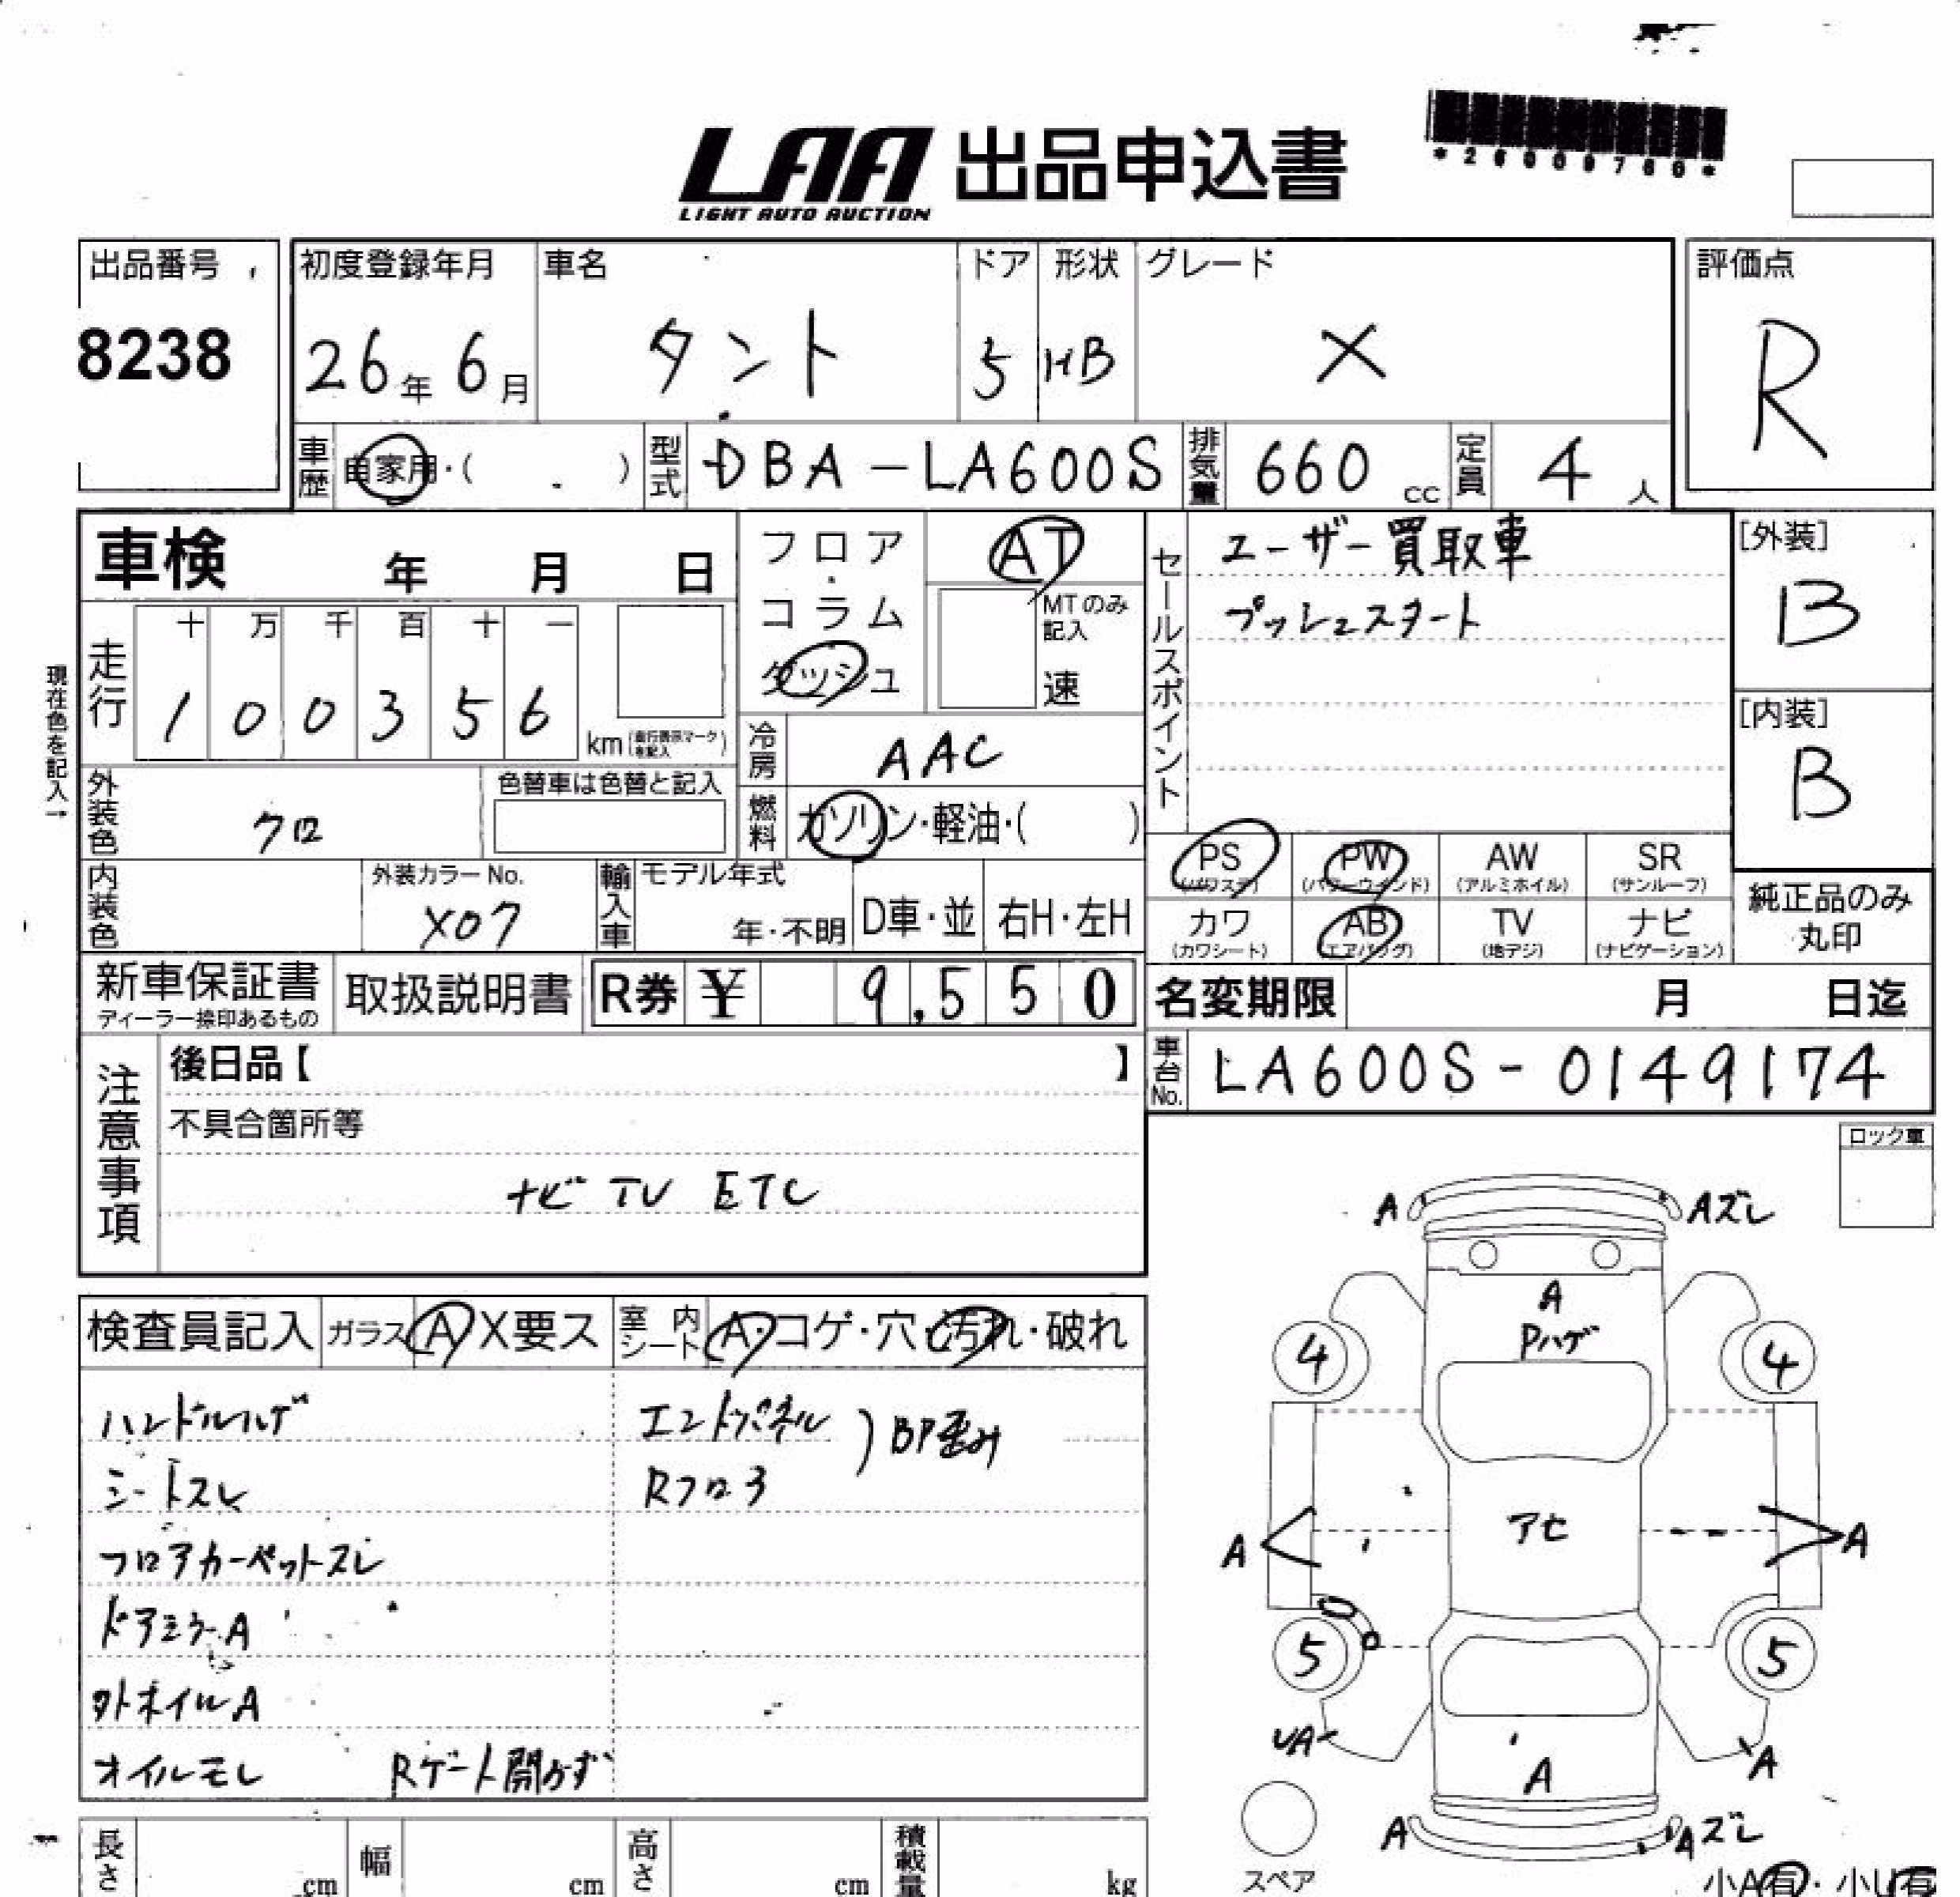 LAA 出品申込書
LIGHT AUTO AUCTION
出品番号
8238
初度登録年月 車名 ドア 形状 グレード
26年 6月 タント 5 HB X
評価点
R
車歴 自家用・( ) 型式 DBA-LA600S 排気量 660 cc 定員 4 人
車検 年 月 日
フロア・コラム ダッシュ
AT
MTのみ記入
速
セールスポイント
ユーザー買取車
プッシュスタート
[外装]
B
[内装]
B
現在色を記入→
走行 十 万 千 百 十 一
1 0 0 3 5 6 km (走行表示マークを記入)
冷房 AAC
外装色 クロ 色替車は色替と記入
燃料 ガソリン・軽油・( )
PS (パワステ) PW (パワーウインド) AW (アルミホイル) SR (サンルーフ)
カワ (カワシート) AB (エアバッグ) TV (地デジ) ナビ (ナビゲーション)
純正品のみ丸印
内装色 外装カラーNo. X07
輸入車 モデル年式 年・不明 D車・並 右H・左H
新車保証書 取扱説明書 R券 ¥ 9,550
名変期限 月 日迄
車台No. LA600S-0149174
注意事項
後日品【 】
不具合箇所等
ナビ TV ETC
ロック車
検査員記入 ガラス A X要ス 室内シート A・コゲ・穴・汚れ・破れ
ハンドルハゲ エンドパネル
シートスレ Rフロア BP歪み
フロアカーペットスレ
ドアミラーA
外ホイルA
オイルモレ Rゲート開かず
A Aズレ
A
Pハゲ
4 4
アセ
A A
5 5
UA A
A
A Aズレ
スペア
小A有・小U有
長さ cm 幅 cm 高さ cm 積載量 kg